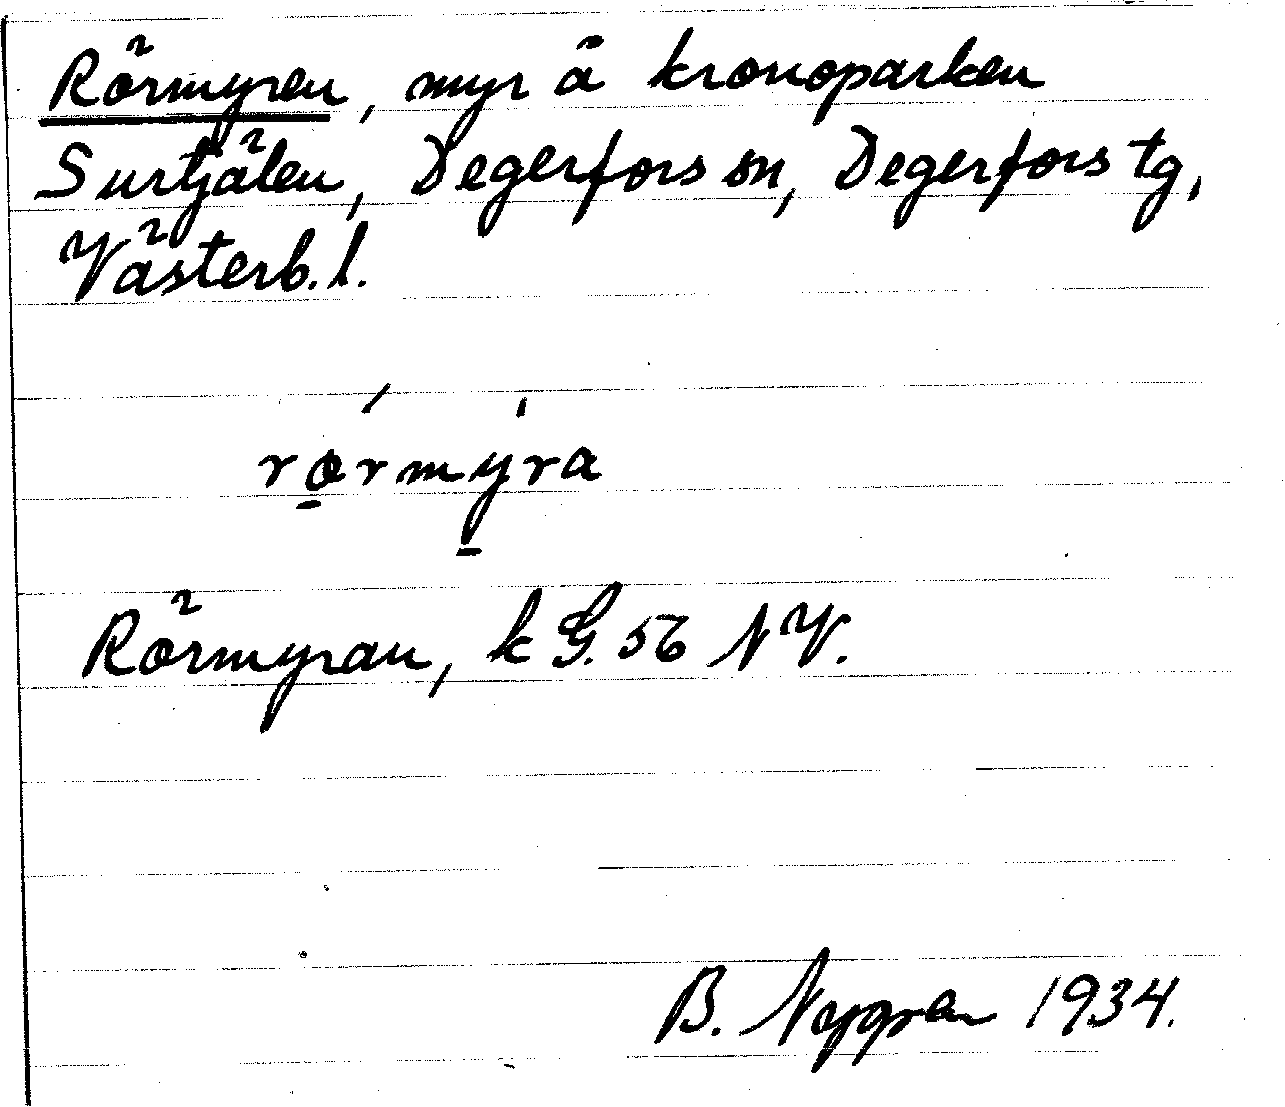 Rörmyren, myr å kronoparken
Surtjälen, Degerfors sn, Degerfors tg,
Västerb. l.
rørmyra
Rörmyran, k G. 56 NV.
B. Nygren 1934.